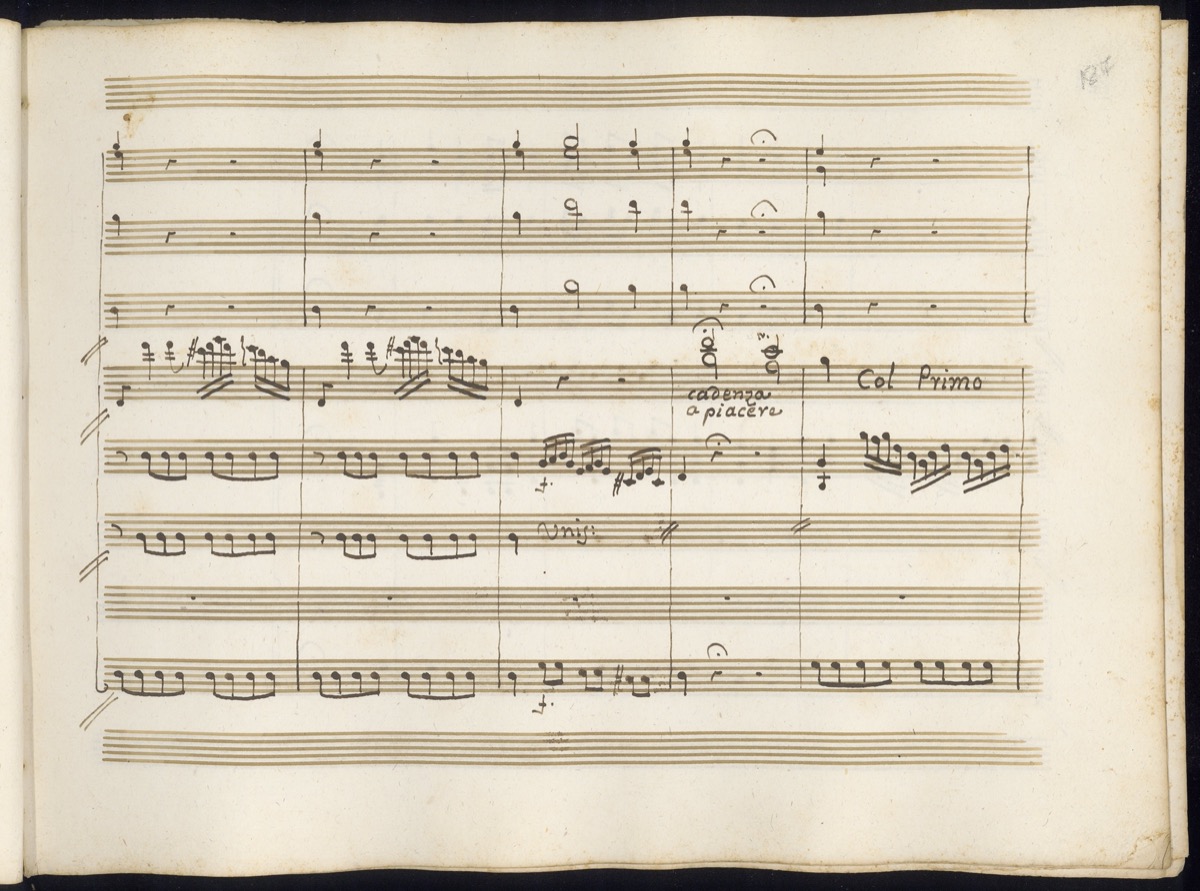 cadenza
a piacere
Col Primo
4.
Unis:
4.